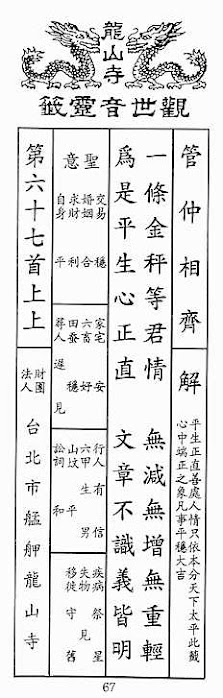 龍山寺
觀世音靈籤
管仲相齊
解
平生正直善處人情只依本分天下太平此籤
心中端正之象凡事平穩大吉
一條金秤等君情　無減無增無重輕
爲是平生心正直　文章不識義皆明
聖意
交易　穩
婚姻　合
求財　利
自身　平
家宅　安
六畜　好
田蚕　穩
尋人　遲見
行人　有信
六甲　生男
山墳　平
訟詞　和
疾病　祭星
失物　見
移徙　守舊
第六十七首上上
財團法人
台北市艋舺龍山寺
67